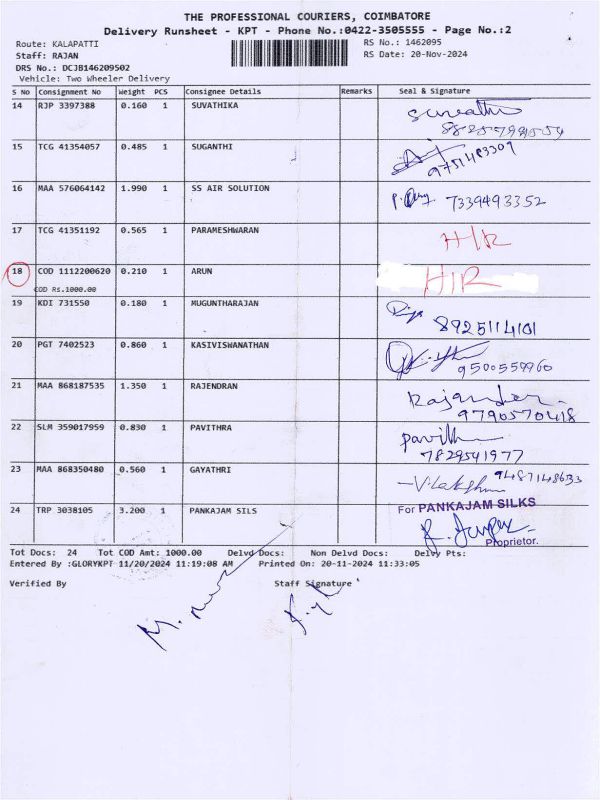 THE PROFESSIONAL COURIERS, COIMBATORE
Delivery Runsheet - KPT - Phone No.:0422-3505555 - Page No.:2
Route: KALAPATTI RS No.: 1462095
Staff: RAJAN RS Date: 20-Nov-2024
DRS No.: DCJB146209502
Vehicle: Two Wheeler Delivery
S No Consignment No Weight PCS Consignee Details Remarks Seal & Signature
14 RJP 3397388 0.160 1 SUVATHIKA
15 TCG 41354057 0.485 1 SUGANTHI
9751483309
16 MAA 576064142 1.990 1 SS AIR SOLUTION 7339493352
17 TCG 41351192 0.565 1 PARAMESHWARAN H/R
18 COD 1112200620 0.210 1 ARUN H/R
COD Rs.1000.00
19 KDI 731550 0.180 1 MUGUNTHARAJAN
8925114101
20 PGT 7402523 0.860 1 KASIVISWANATHAN
9500559960
21 MAA 868187535 1.350 1 RAJENDRAN Rajendran
9790570418
22 SLM 359017959 0.830 1 PAVITHRA
7829541977
23 MAA 868350480 0.560 1 GAYATHRI 9487148633
24 TRP 3038105 3.200 1 PANKAJAM SILS For PANKAJAM SILKS
Proprietor.
Tot Docs: 24 Tot COD Amt: 1000.00 Delvd Docs: Non Delvd Docs: Delvy Pts:
Entered By :GLORYKPT 11/20/2024 11:19:08 AM Printed On: 20-11-2024 11:33:05
Verified By Staff Signature